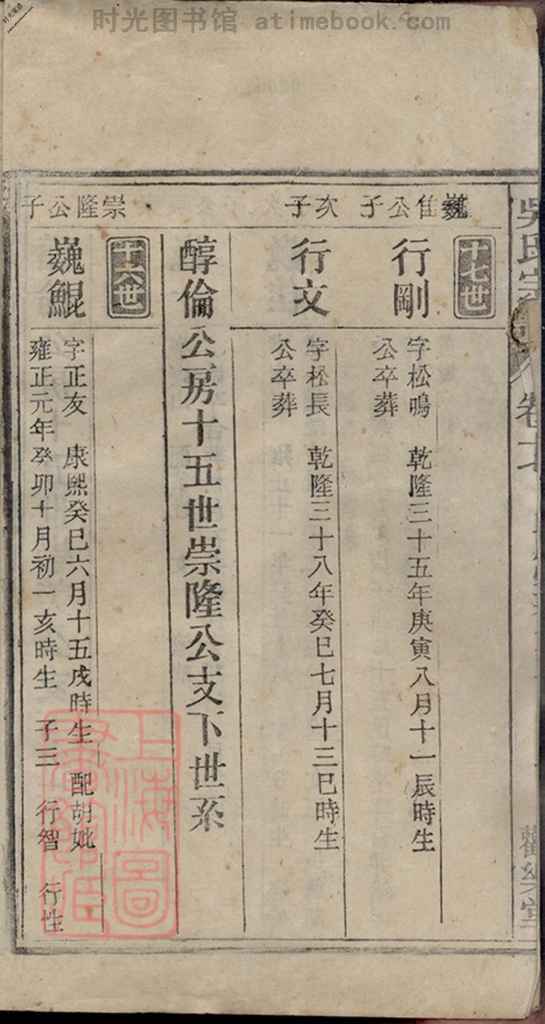 时光图书馆 www.atimebook.com
吳氏宗
卷七
十七世
巍佳公子
行剛
字松鳴 乾隆三十五年庚寅八月十一辰時生
公卒葬
次子
行文
字松長 乾隆三十八年癸巳七月十三巳時生
公卒葬
醇倫公房十五世崇隆公支下世系
十六世
崇隆公子
巍鯤
字正友 康熙癸巳六月十五戌時生 配胡妣
雍正元年癸卯十月初一亥時生 子三 行智 行性
上海圖書館藏